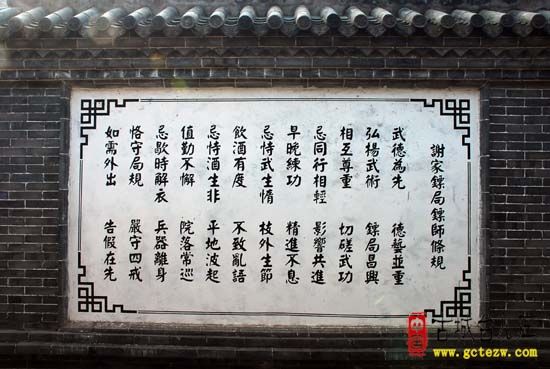 謝家鏢局鏢師條規
武德為先 德藝並重
弘揚武術 鏢局昌興
相互尊重 切磋武功
忌同行相輕 影響共進
早晚練功 精進不息
忌恃武生惰 枝外生節
飲酒有度 不致亂語
忌恃酒生非 平地波起
值勤不懈 院落常巡
忌歇時解衣 兵器離身
恪守局規 嚴守四戒
如需外出 告假在先
古城
www.gctezw.com